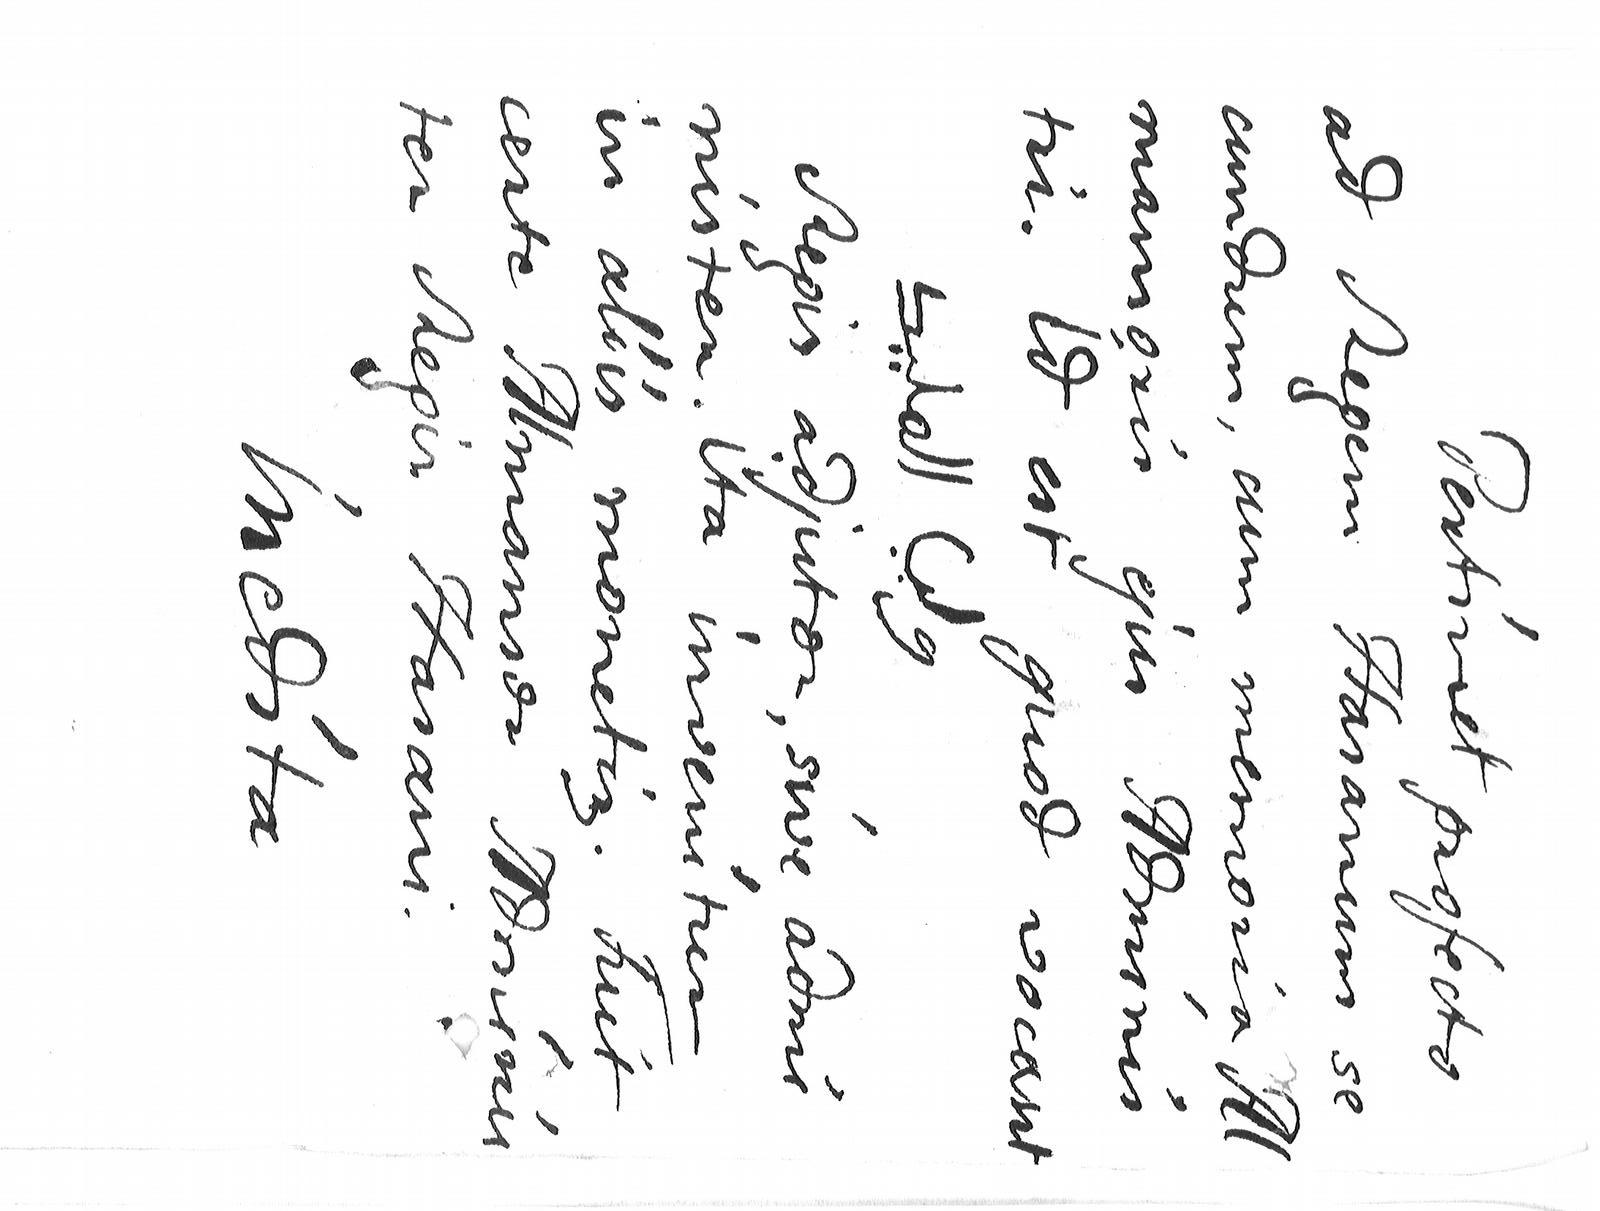 Pertinet profecto
ad Regem Hasanum se
cundum, cum memoria Al
mansoris ejus Adminis
tri. Id est quod vocant
Regis adjutor, sive admi
nister. Ita invenitur
in aliis monetis. Fuit
certe Almansor Adminis
ter Regis Hasani.
Inedita